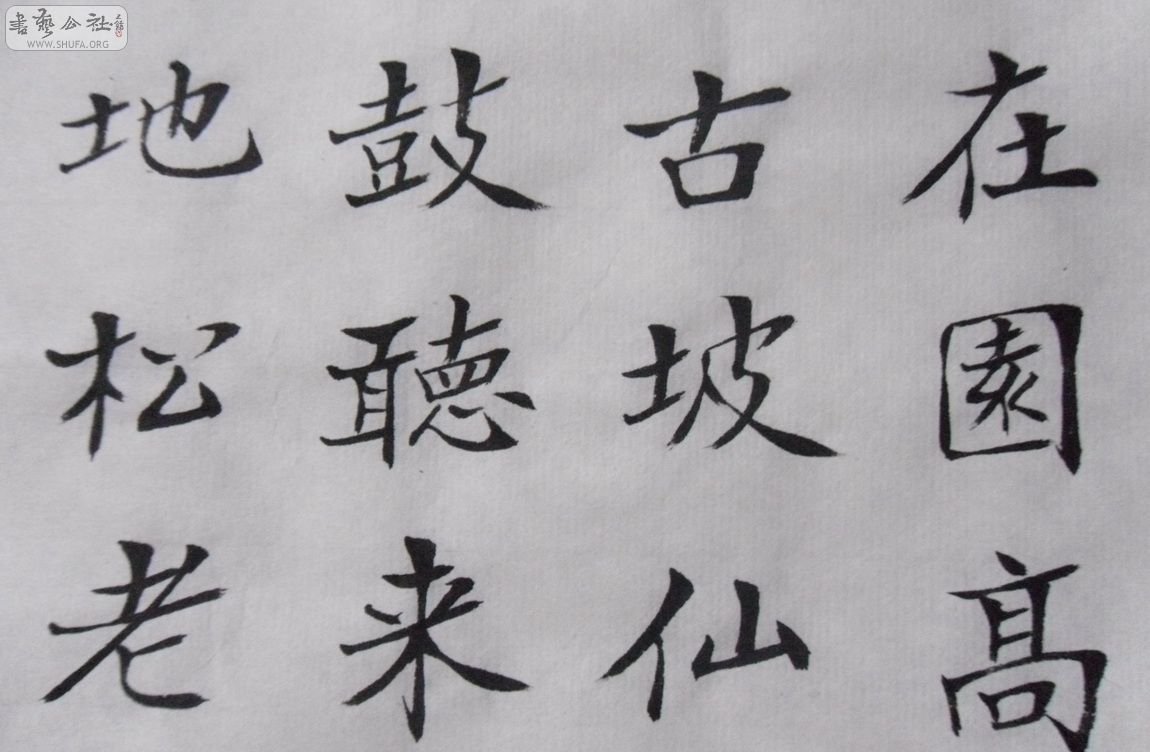 書藝公社
WWW.SHUFA.ORG
在園髙
古坡仙
鼓聽来
地松老